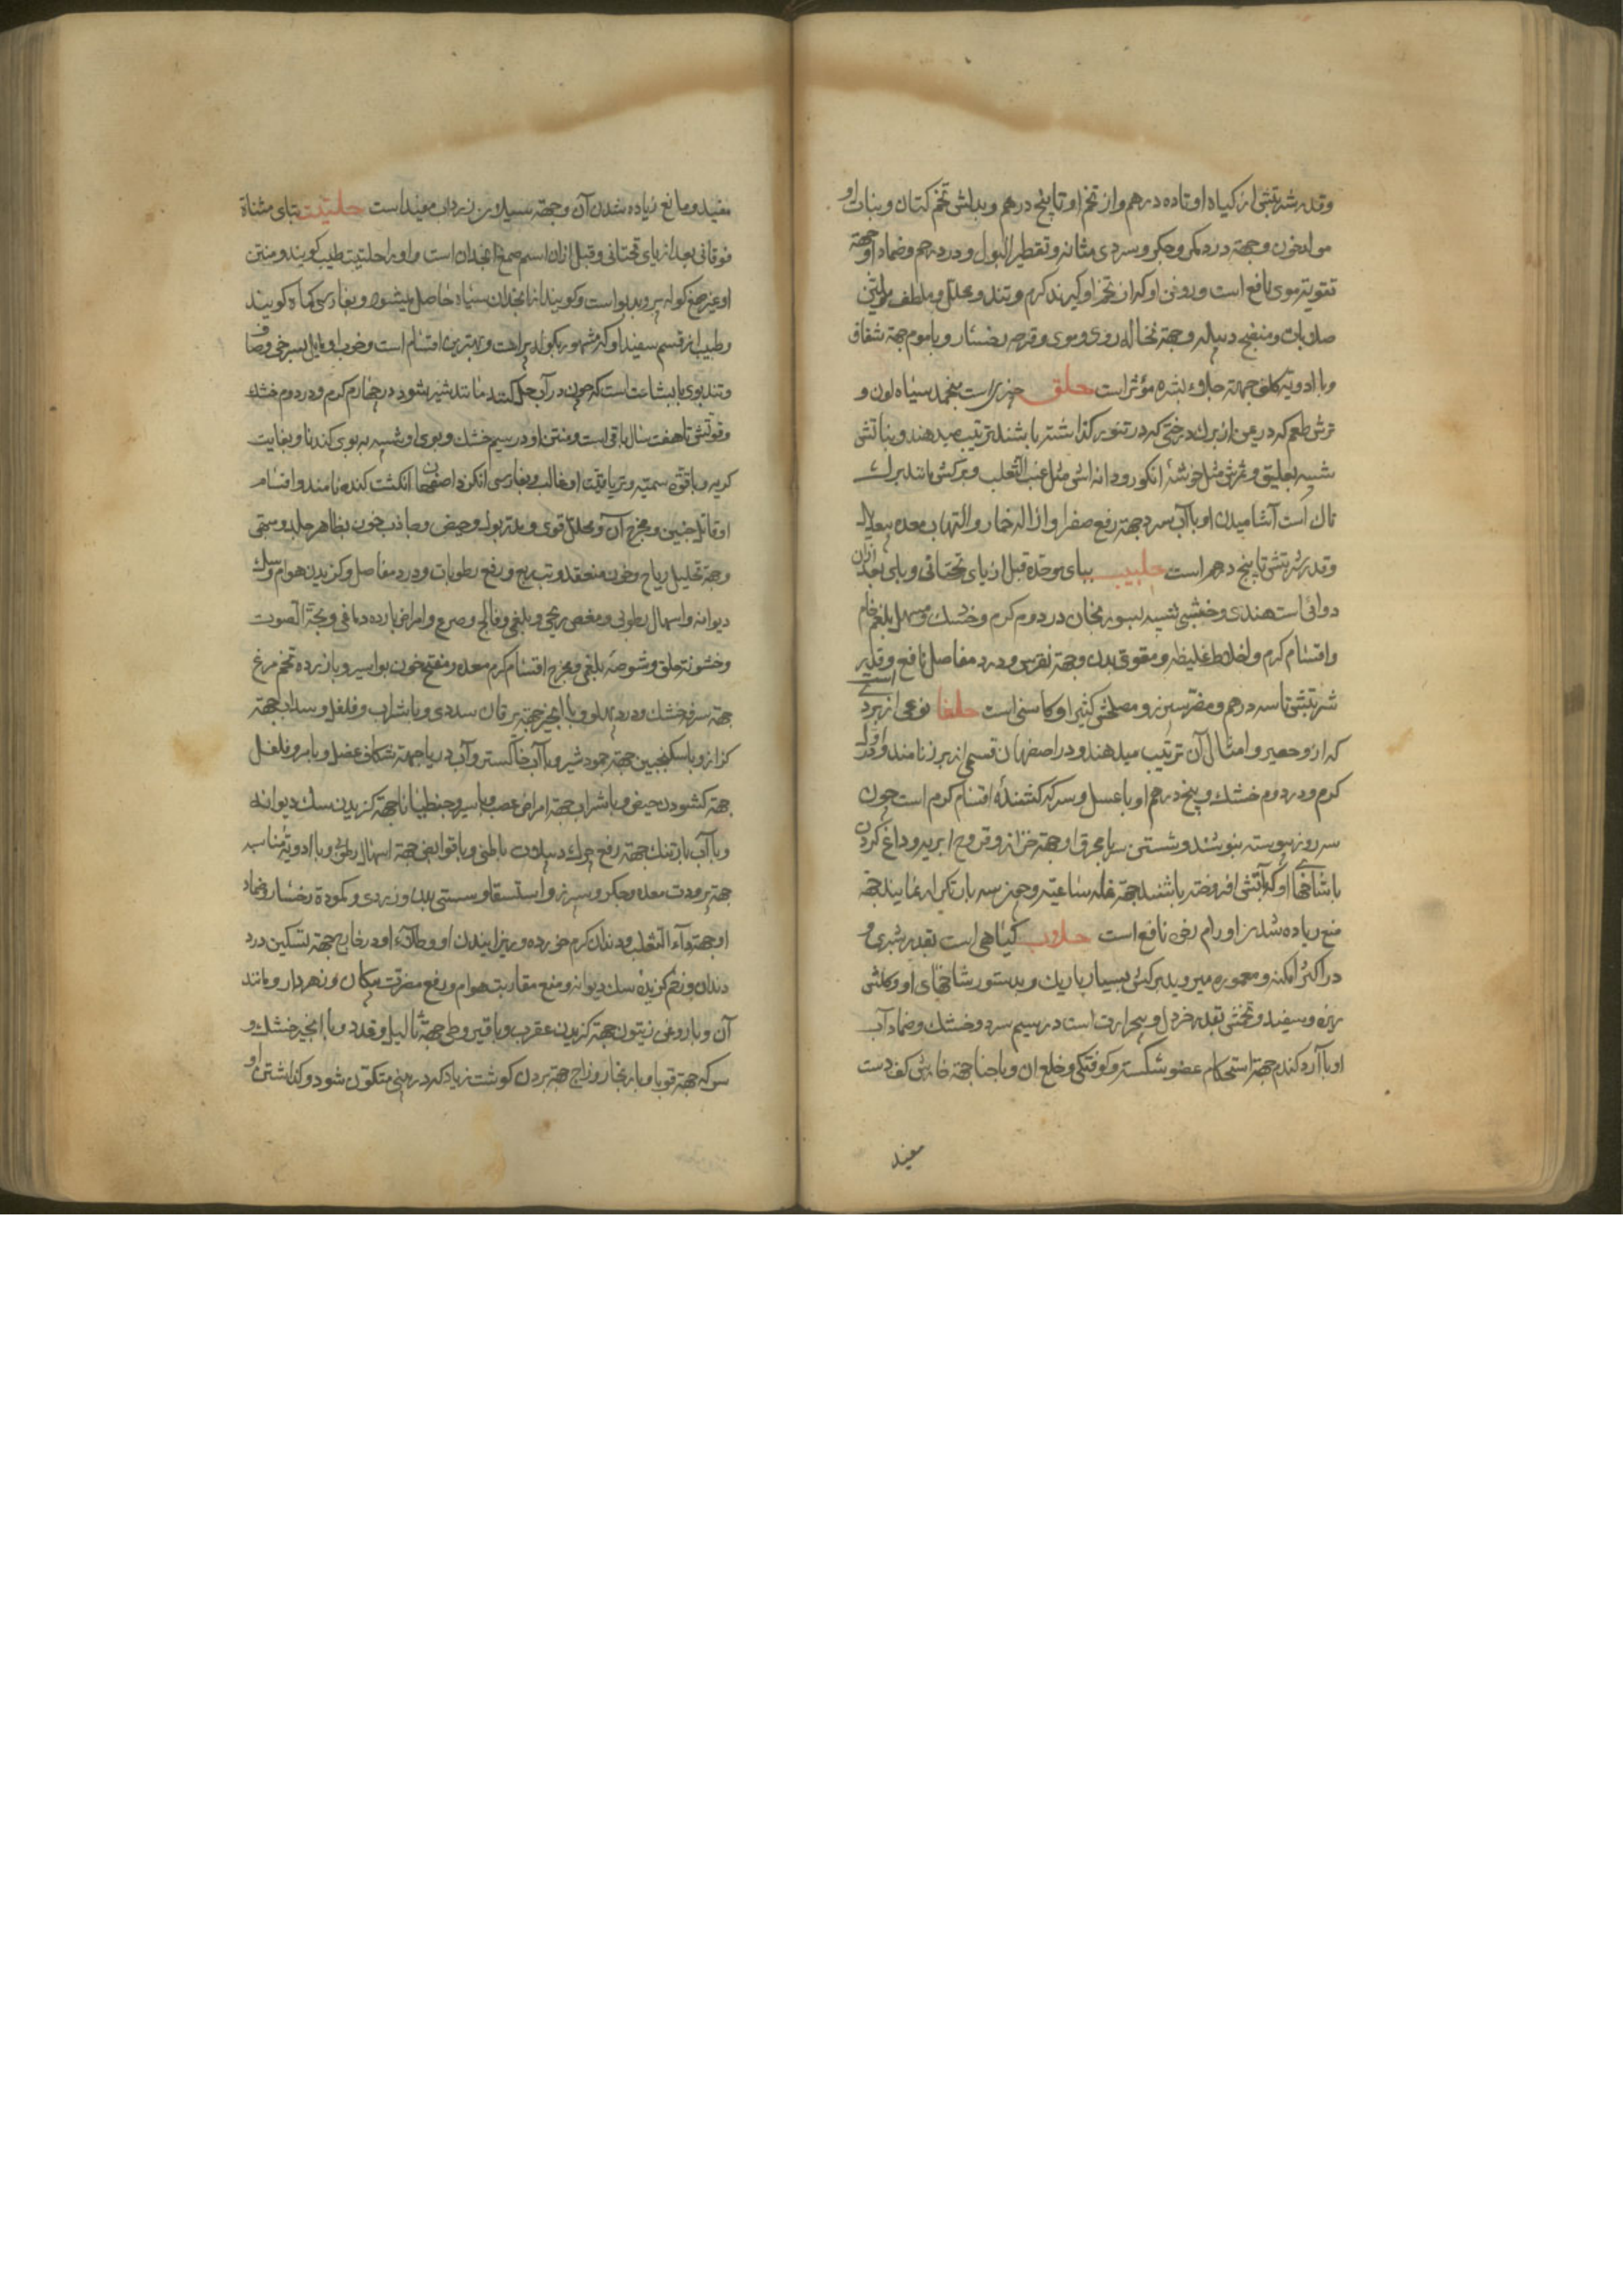 و قدر شربتش از کیاه او تا ده درهم و از تخم او تا پنج درهم و بدلش تخم کتان و نبات او
مولد خون و جهة درد کمر و جکر و سردی مثانه و تقطیر البول و درد رحم و ضماد او جهة
تقویت موی نافع است و روغن او که از تخم او کیرند کرم و تند و محلل و ملطف و ملین
صلابات و منضج دبیله و جهة نخاله روی و موی و قرحه رخسار و با موم جهة شقاق
و با ادویه کلف جهة جلاء بشره مؤثر است حلق چیزیست منجمد سیاه لون و
ترش طعم که در یمن از برك درختی که در تنور کذاشته باشند ترتیب میدهند و نباتش
شبیه بعلیق و ثمرش مثل خوشه انکور و دانه اش مثل عنب الثعلب و برکش مانند برك
تاك است آشامیدن او با آب سرد جهة رفع صفرا و ازاله خمار و التهاب معده بیعدیل
و قدر شربتش تا پنج درهم است حلبیب ببای موحده قبل از یای تحتانی و بای بعد ازان
دوائی است هندی و خشبی شبیه بسورنجان در دوم کرم و خشك و مسهل بلغم خام
و اقسام کرم و اخلاط غلیظه و مقوی بدن و جهة نقرس و درد مفاصل نافع و قدر
شربتش تا سه درهم و مضر سپرز و مصلحش کثیرا و کاسنی است حلفا نوعی از بردی است
که ازو حصیر و امثال آن ترتیب میدهند و در اصفهان قسمی از بیزر نامند در اول
کرم و در دوم خشك و پنج درهم او با عسل و سرکه کشنده اقسام کرم است چون
سه روز پیوسته بنوشند و شستن سر با محرق او جهة حزاز و قروح ابریه و داغ کردن
با شاخهای او که بآتش افروخته باشند جهة غله ساعیه و چون سه بار تکرار نمایند جهة
منع زیاده شدن اورام رخو نافع است حلاب کیاهی است بقدر شبری و
در اکثر امکنه و معموره میروید برکش بسیار باریك و بدستور شاخهای او و کلش
ریزه و سفید و تخمش بقدر خردل و بیحرارت است در سیم سرد و خشك و ضماد آب
او با آرد کندم جهة استحکام عضو شکسته و کوفتکی و خلع ان و با حنا جهة خارش کف دست
مفید
مفید و مانع زیاده شدن آن و جهة سیلان زرداب مفید است حلتیت بتای مثناة
فوقانی بعد از یای تحتانی و قبل ازان اسم صمغ انجدان است و او را حلتیت طیب کویند و منتن
او غیر صمغ کوله پر و بدبو است و کویند از انجدان سیاه حاصل میشود و بفارسی کماه کویند
و طیب از قسم سفید او که مشهور بکوله پر است و بهترین اقسام است و خوب او مایل بسرخی و صاف
و تند بوی با بشاعت است که چون در آب حل کنند مانند شیر شود در چهارم کرم و در دوم خشك
و قوتش تا هفت سال باقی است و منتن او در سیم خشك و بوی او شبیه به بوی کندنا و بغایت
کریه و با قوة سمیه و تریاقیت او غالب و بفارسی انکزد و اصفهان انکشت کنده نامند و اقسام
او قاتل جنین و مخرج آن و محلل قوی و مدر بول و حیض و جاذب خون بظاهر جلد و مسهی
و جهة تحلیل ریاح و خون منعقد و تب ربع و رفع رطوبات و درد مفاصل و کزیدن هوام و سك
دیوانه و اسهال رطوبی و مغص ریحی و بلغمی و فالج و صرع و امراض بارده دماغی و بحة الصوت
و خشونة حلق و شوصه بلغمی و مخرج اقسام کرم معده و مفتح خون بواسیر و با زرده تخم مرغ
جهة سرفه خشك و درد پهلو و با انجیر جهة یرقان سددی و با شراب و فلفل و سداب جهة
کزاز و با سکنجبین جهة جمود شیر و با آب خاکستر و آب دریا جهة شکاف عضل و با مر و فلفل
جهة کشودن حیض و با شراب جهة امراض عصب و با سیر و جنطیانا جهة کزیدن سك دیوانه
و با آب بارتنك جهة رفع چرك دمیلات باطنی و با قوابض جهة اسهال رطوبی و با ادویه مناسبه
جهة برودت معده و جکر و سپرز و استسقا و سستی بدن و زردی و کمودة رخسار و ضماد
او جهة داء الثعلب و دندان کرم خورده و ریزانیدن او و طلاء او در خارج جهة تسکین درد
دندان و زخم کزیده سك دیوانه و منع مقاربت هوام و رفع مضرت پیکان زهردار و مانند
آن و با روغن زیتون جهة کزیدن عقرب و با قیروطی جهة ثآلیل و غدد و با انجیر خشك و
سرکه جهة قوبا و با زنجار و زاج جهة بردن کوشت زیاد که در بینی متکون شود و کذاشتن او